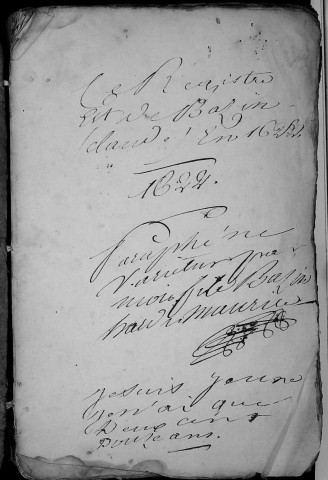 Ce Registre
est de Bazin
Claude En 1622
1622.
Paraphé ne
varietur par
moi Bazin
Maurice
je suis jeune
je n'ai que
Deux cents
Douze ans.